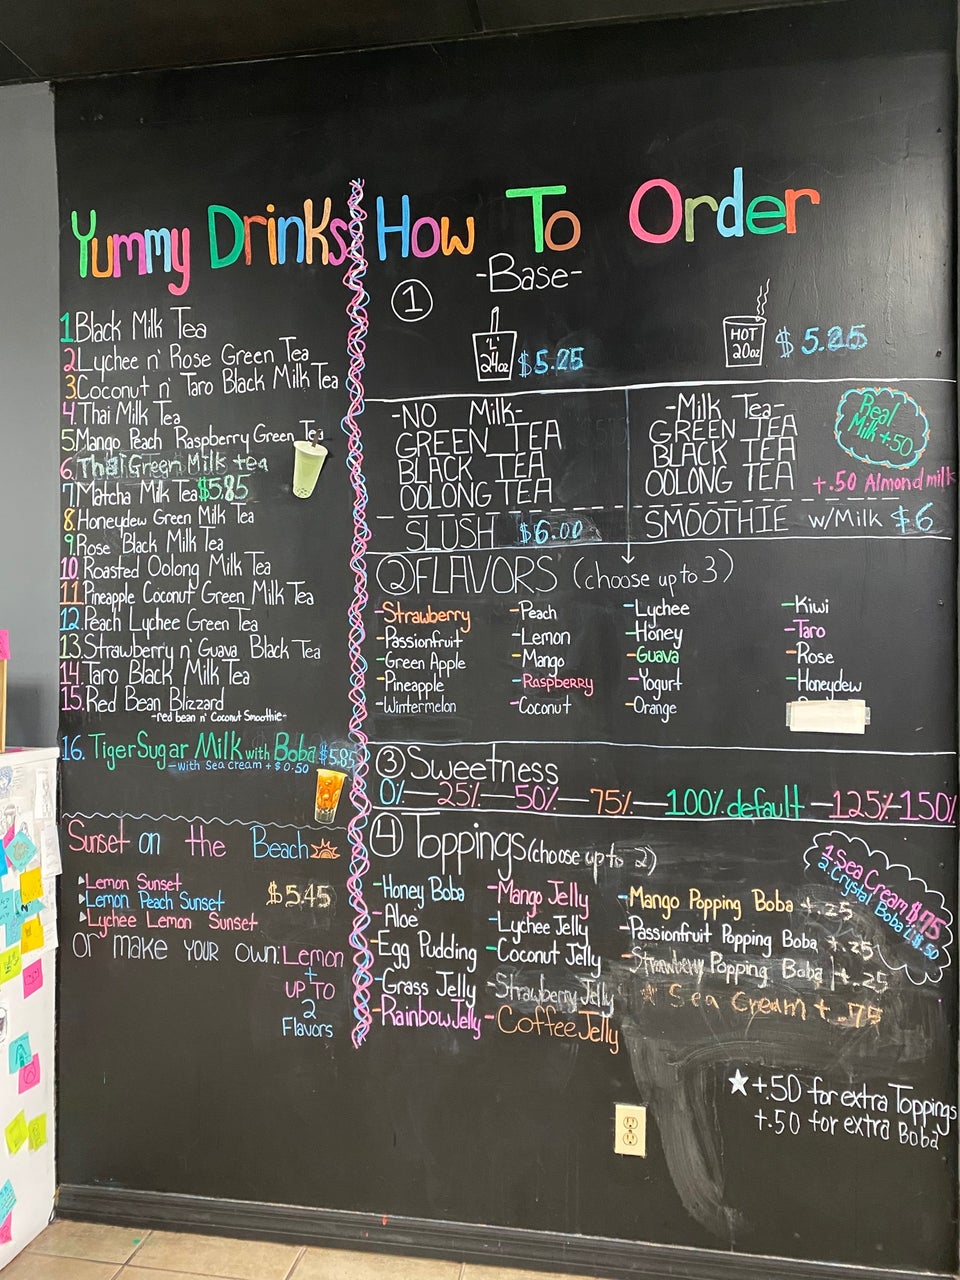 Yummy Drinks
1 Black Milk Tea
2 Lychee n' Rose Green Tea
3 Coconut n' Taro Black Milk Tea
4. Thai Milk Tea
5. Mango Peach Raspberry Green Tea
6. Thai Green Milk tea
7. Matcha Milk Tea $5.85
8. Honeydew Green Milk Tea
9. Rose Black Milk Tea
10. Roasted Oolong Milk Tea
11. Pineapple Coconut Green Milk Tea
12. Peach Lychee Green Tea
13. Strawberry n' Guava Black Tea
14. Taro Black Milk Tea
15. Red Bean Blizzard
-red bean n' Coconut Smoothie-
16. Tiger Sugar Milk with Boba $5.85
-with Sea cream + $0.50
Sunset on the Beach
Lemon Sunset
Lemon Peach Sunset
Lychee Lemon Sunset
$5.45
or make your own: Lemon
+
UP TO
2
Flavors
How To Order
1 -Base-
"L"
24oz
$5.25
HOT
20oz
$5.25
-NO Milk-
GREEN TEA
BLACK TEA
OOLONG TEA
SLUSH $6.00
-Milk Tea-
GREEN TEA
BLACK TEA
OOLONG TEA
Real
Milk +.50
+.50 Almond milk
SMOOTHIE w/Milk $6
2 FLAVORS (choose up to 3)
-Strawberry
-Passionfruit
-Green Apple
-Pineapple
-Wintermelon
-Peach
-Lemon
-Mango
-Raspberry
-Coconut
-Lychee
-Honey
-Guava
-Yogurt
-Orange
-Kiwi
-Taro
-Rose
-Honeydew
3 Sweetness
0%—25%—50%—75%—100% default—125%-150%
4 Toppings (choose up to 2)
-Honey Boba
-Aloe
-Egg Pudding
-Grass Jelly
-Rainbow Jelly
-Mango Jelly
-Lychee Jelly
-Coconut Jelly
-Strawberry Jelly
-Coffee Jelly
-Mango Popping Boba +.25
-Passionfruit Popping Boba +.25
-Strawberry Popping Boba +.25
Sea Cream +.75
1. Sea Cream $.75
2. Crystal Boba
+.50 for extra Toppings
+.50 for extra Boba